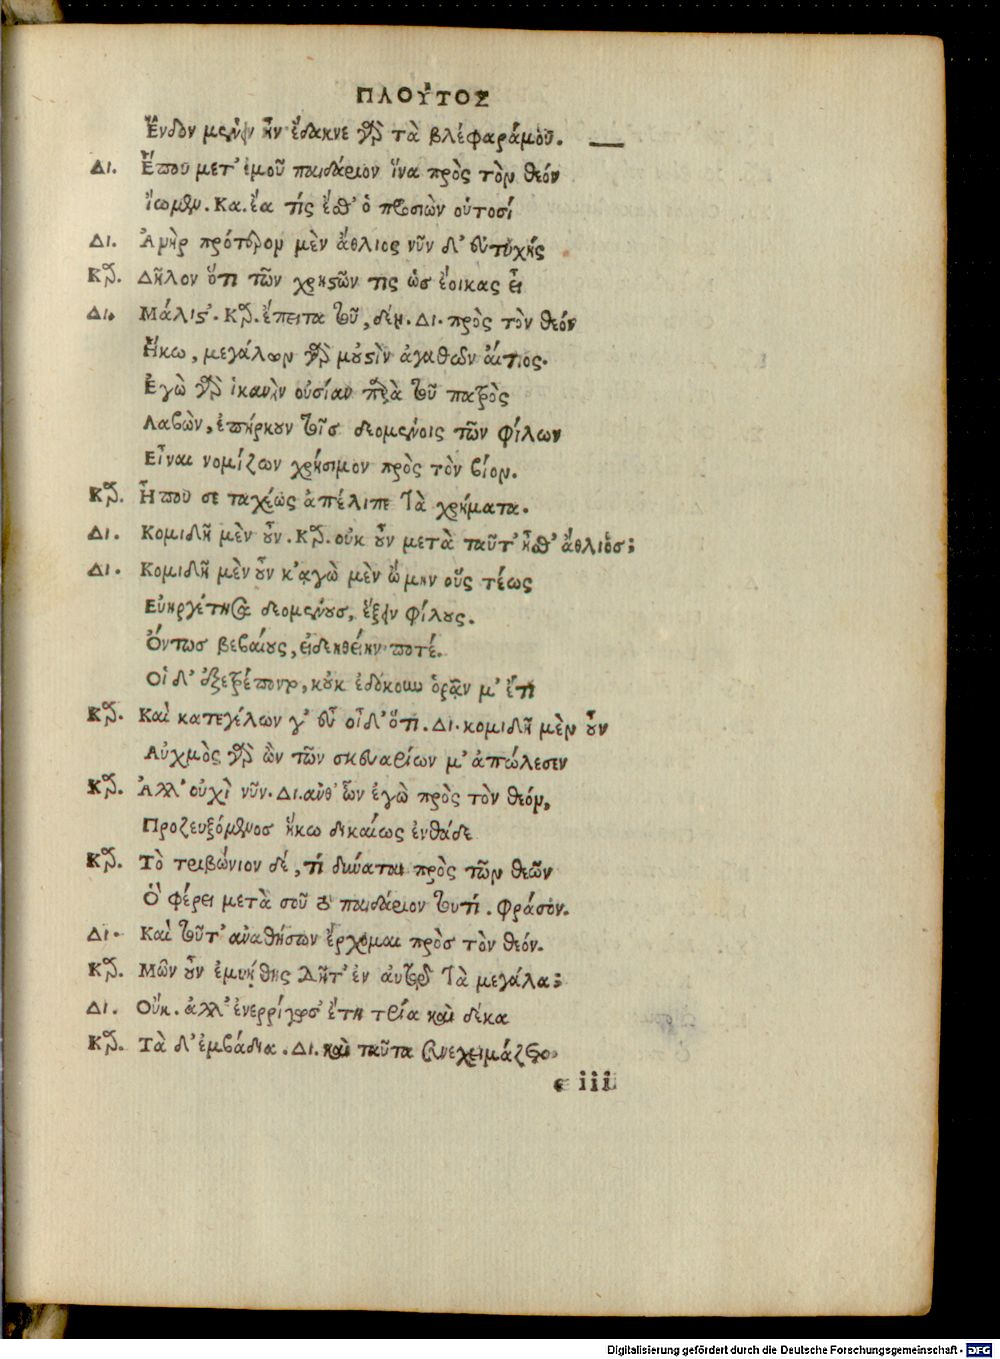 ΠΛΟΥ͂ΤΟΣ
Ἔνδον μένειν ἦν ἔδακνε γὰρ τὰ βλέφαράμου.
Δι. Ἕπου μετ' ἐμοῦ παιδάριον ἵνα πρὸς τὸν θεόν
ἴωμεν. Κα. ἔα τίς ἔσθ' ὁ προσιὼν οὑτοσί
Δι. Ἀνὴρ πρότερον μὲν ἄθλιος νῦν δ' εὐτυχής
Καρ. Δῆλον ὅτι τῶν χρηστῶν τις ὡσ ἔοικας εἶ
Δι. Μάλιστ'. Καρ. ἔπειτα τοῦ, δέη. Δι. πρὸς τὸν θεόν
Ἥκω, μεγάλων γὰρ μοὐστὶν ἀγαθῶν ἄιτιος.
Ἐγὼ γὰρ ἱκανὴν οὐσίαν παρὰ τοῦ πατρὸς
Λαβὼν, ἐπήρκουν τοῖσ δεομένοις τῶν φίλων
Εἶναι νομίζων χρήσιμον πρὸς τὸν βίον.
Καρ. Ἦ που σε ταχέως ἀπέλιπε τὰ χρήματα.
Δι. Κομιδῆ μὲν οὖν. Καρ. οὐκ οὖν μετὰ ταῦτ' ἦσθ' ἄθλιοσ;
Δι. Κομιδῆ μὲν οὖν κ'αγὼ μὲν ὤμην οὓς τέως
Εὐηργέτησα δεομένουσ, ἕξειν φίλους.
Ὄντωσ βεβαίους, εἰδεηθείην ποτέ.
Οἱ δ' ἐξετρέποντο, κοὐκ ἐδόκουν ὁρᾶν μ' ἔτι
Καρ. Καὶ κατεγέλων γ' εὖ οἶδ' ὅτι. Δι. κομιδῆ μὲν οὖν
Αὐχμὸς γὰρ ὢν τῶν σκευαρίων μ' ἀπώλεσεν
Καρ. Ἀλλ' οὐχὶ νῦν. Δι. ἀνθ' ὧν ἐγὼ πρὸς τὸν θεόν,
Προζευξόμενοσ ἥκω δικαίως ἐνθάδε
Καρ. Τὸ τριβώνιον δέ, τί δύναται πρὸς τῶν θεῶν
Ὃ φέρει μετὰ σοῦ τὸ παιδάριον τουτί. φράσον.
Δι. Καὶ τοῦτ' ἀναθήσων ἔρχομαι πρὸσ τὸν θεόν.
Καρ. Μῶν οὖν ἐμυήθης δῆτ' ἐν ἀυτῷ τὰ μεγάλα;
Δι. Οὔκ. ἀλλ' ἐνερρίγωσ' ἔτη τρία καὶ δέκα
Καρ. Τὰ δ' ἐμβάδια. Δι. καὶ ταῦτα συνεχειμάζετο.
e iii
Digitalisierung gefördert durch die Deutsche Forschungsgemeinschaft - DFG